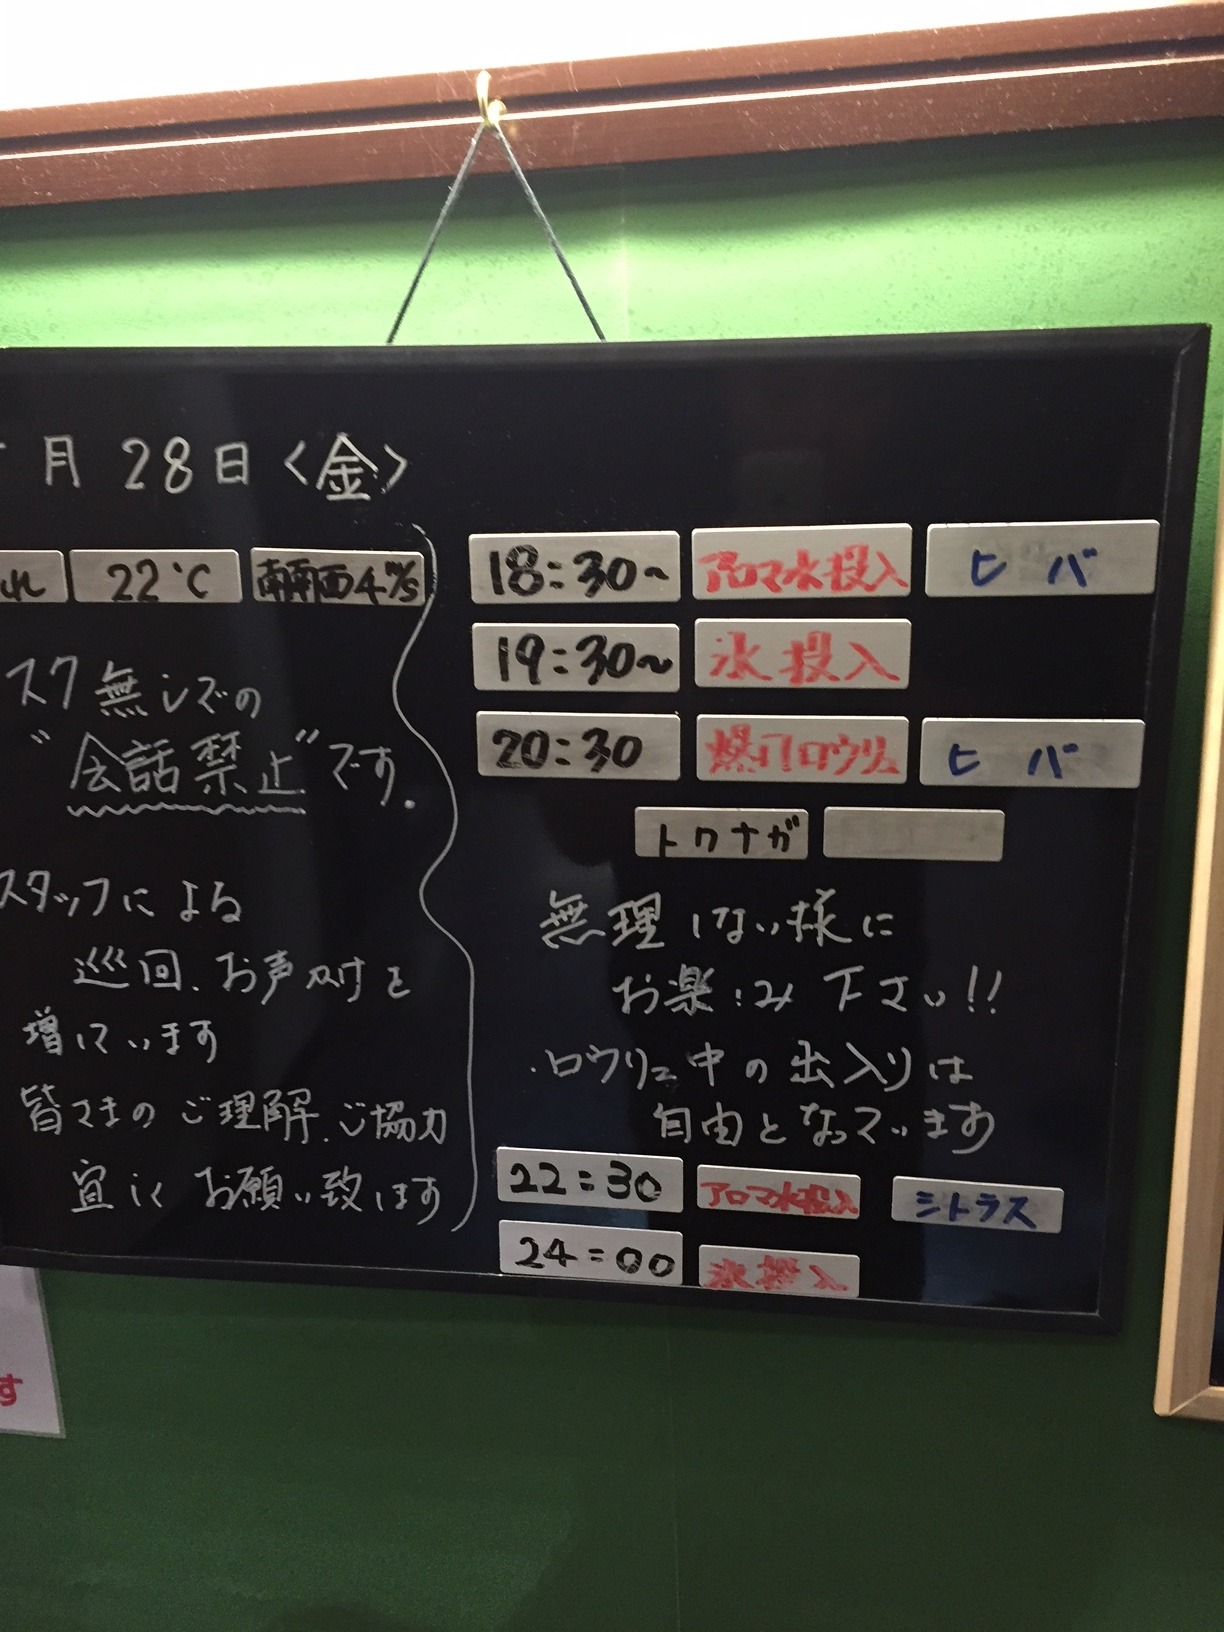 月28日〈金〉
れ 22℃ 南南西4m/s
スク無しでの
"会話禁止"です。
スタッフによる
巡回、お声掛けを
増しています
皆さまのご理解、ご協力
宜しくお願い致します
18:30~ アロマ水投入 ヒバ
19:30~ 氷投入
20:30 爆門ロウリュ ヒバ
トクナガ
無理しない様に
お楽しみ下さい!!
・ロウリュ中の出入りは
自由となっています
22:30 アロマ水投入 シトラス
24:00 氷投入
す